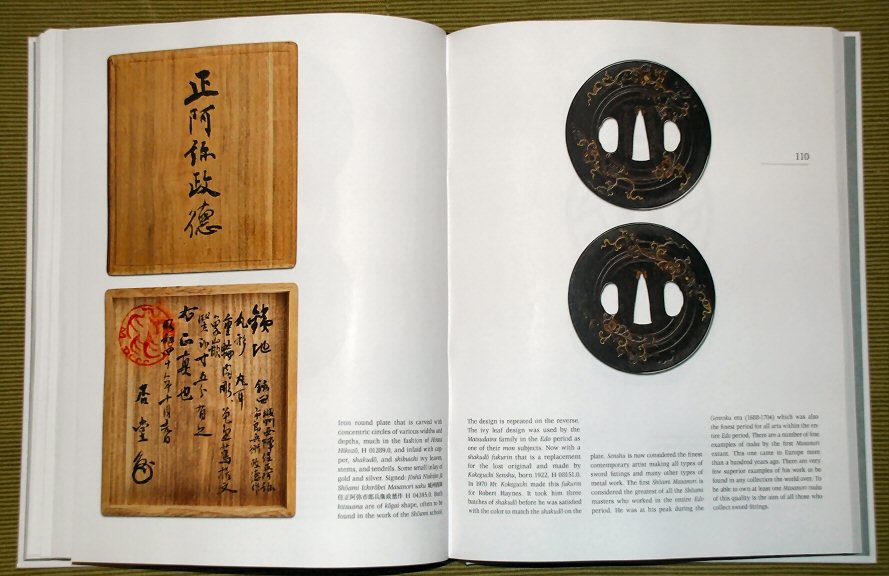 正阿弥政徳
鉄地
丸形 丸耳
右正真也
Iron round plate that is carved with
concentric circles of various widths and
depths, much in the fashion of Hirata
Hikozō, H 01289.0, and inlaid with cop-
per, shakudō, and shibuichi ivy leaves,
stems, and tendrils. Some small inlay of
gold and silver. Signed: Jōshū
Shōami Ichirōbei Masanori saku
作 H 04395.0. Both
hitsuana are of kōgai shape, often to be
found in the work of the Shōami school.
The design is repeated on the reverse.
The ivy leaf design was used by the
Matsudaira family in the Edo period as
one of their mon subjects. Now with a
shakudō fukurin that is a replacement
for the lost original and made by
Kokeguchi Senshu, born 1922, H 08151.0.
In 1970 Mr. Kokeguchi made this fukurin
for Robert Haynes. It took him three
batches of shakudō before he was satisfied
with the color to match the shakudō on the
plate. Senshu is now considered the finest
contemporary artist making all types of
sword fittings and many other types of
metal work. The first Shōami Masanori is
considered the greatest of all the Shōami
masters who worked in the entire Edo
period. He was at his peak during the
Genroku era (1688-1704) which was also
the finest period for all arts within the en-
tire Edo period. There are a number of fine
examples of tsuba by the first Masanori
extant. This one came to Europe more
than a hundred years ago. There are very
few superior examples of his work to be
found in any collection the world over. To
be able to own at least one Masanori tsuba
of this quality is the aim of all those who
collect sword fittings.
110